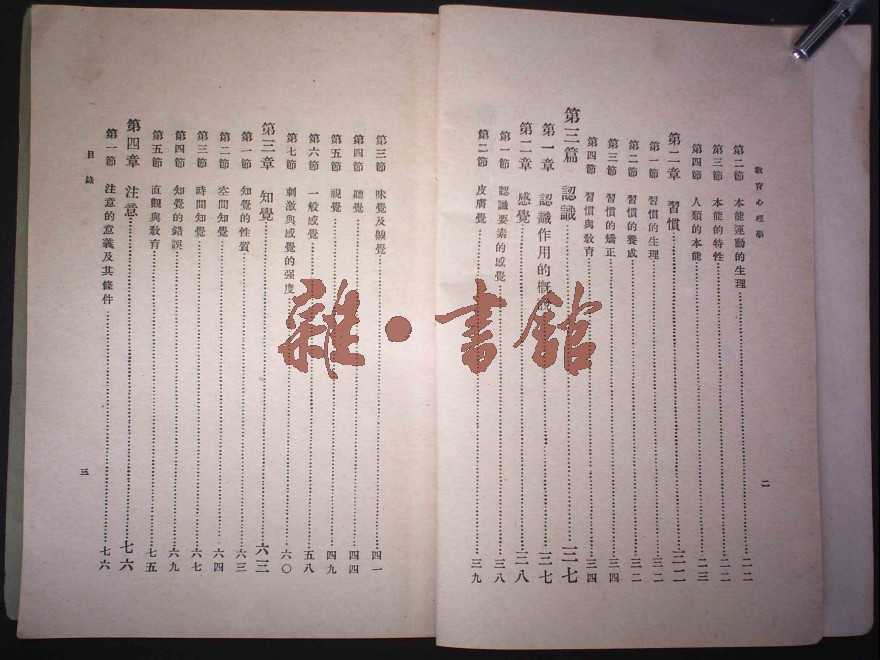 教育心理學
第二節 本能運動的生理 二二
第三節 本能的特性 二二
第四節 人類的本能 二三
第二章 習慣 三二
第一節 習慣的生理 三二
第二節 習慣的養成 三二
第三節 習慣的矯正 三四
第四節 習慣與教育 三四
第三篇 認識 三七
第一章 認識作用的概 三七
第二章 感覺 三八
第一節 認識要素的感覺 三八
第二節 皮膚覺 三九
二
第三節 味覺及嗅覺 四一
第四節 聽覺 四四
第五節 視覺 四九
第六節 一般感覺 五八
第七節 刺激與感覺的强度 六〇
第三章 知覺 六三
第一節 知覺的性質 六三
第二節 空間知覺 六四
第三節 時間知覺 六七
第四節 知覺的錯誤 六九
第五節 直觀與教育 七五
第四章 注意 七六
第一節 注意的意義及其條件 七六
目錄
三
雜·書館